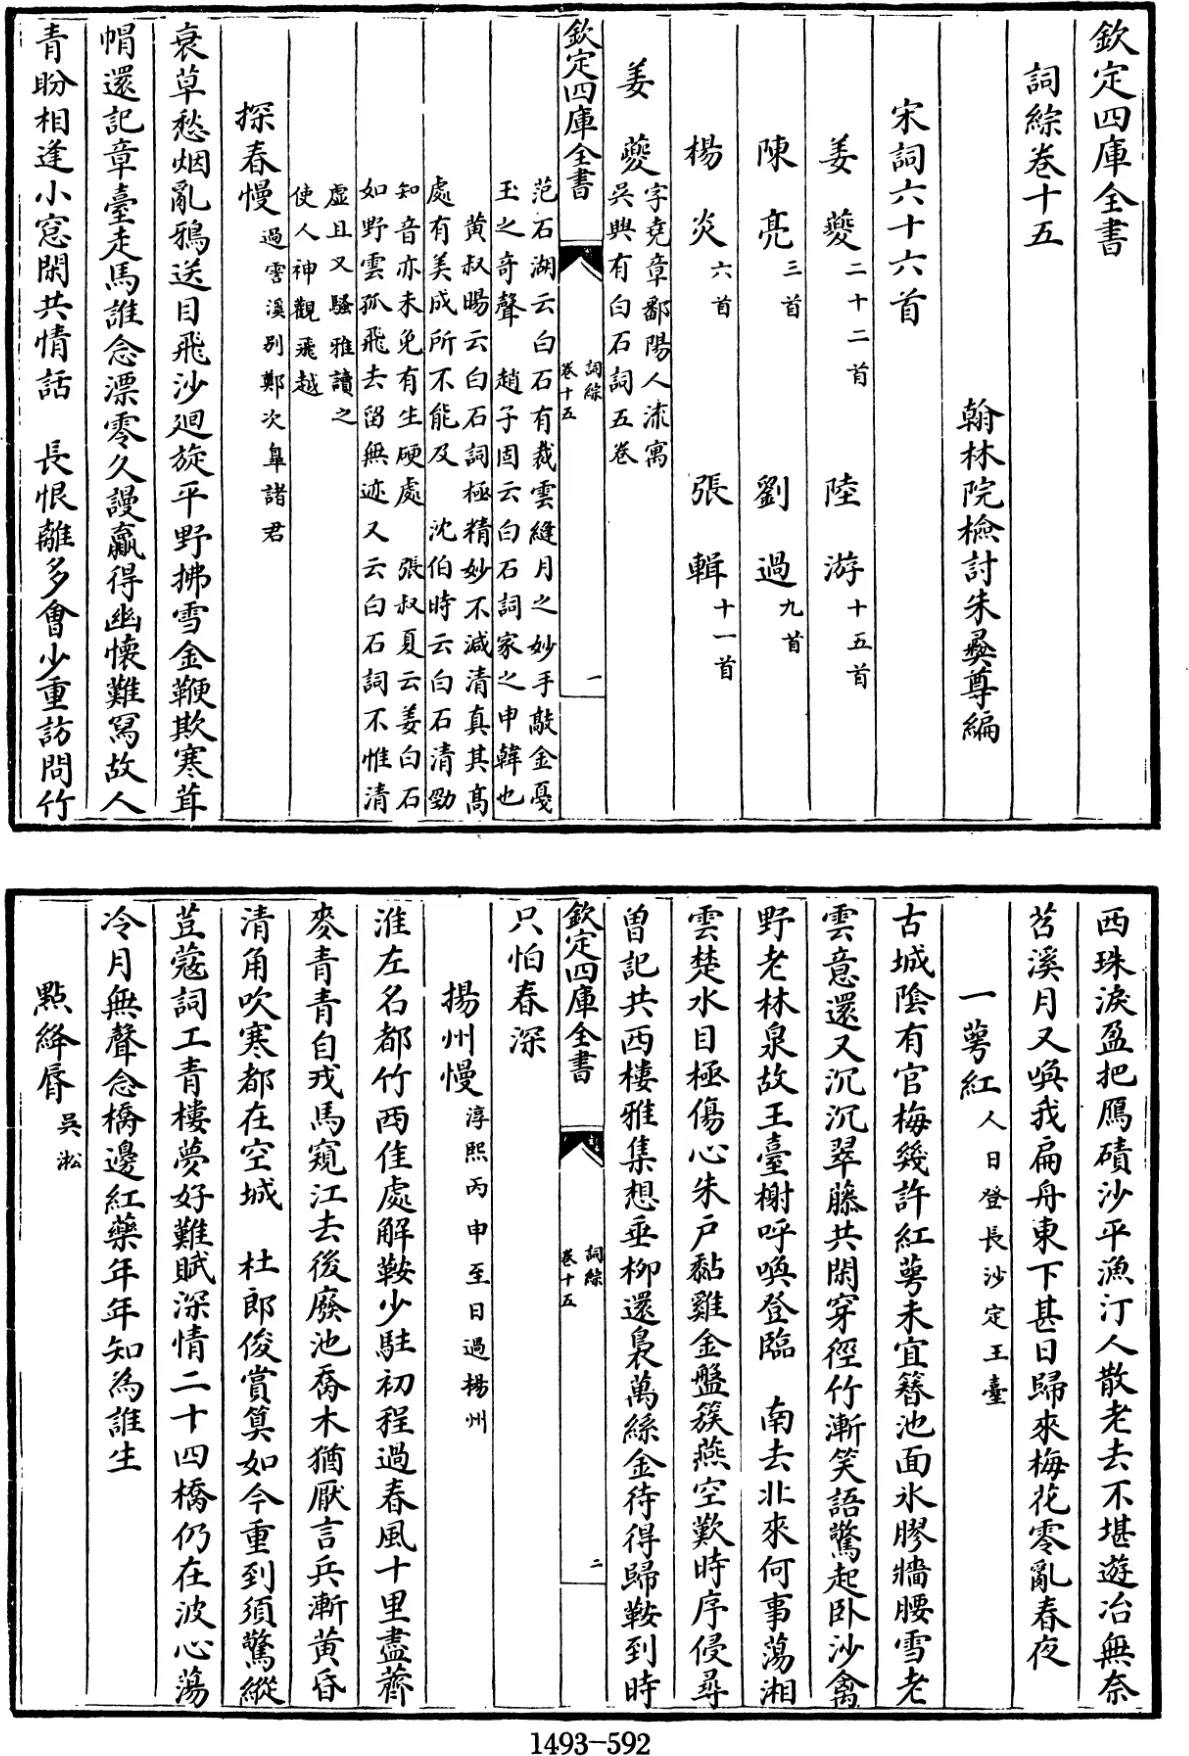 欽定四庫全書
詞綜卷十五
翰林院檢討朱彝尊編
宋詞六十六首
姜夔二十二首 陸游十五首
陳亮三首 劉過九首
楊炎六首 張輯十一首
姜夔字堯章鄱陽人流寓
吳興有白石詞五卷
欽定四庫全書 詞綜 卷十五 一
范石湖云白石有裁雲縫月之妙手敲金戞
玉之奇聲 趙子固云白石詞家之申韓也
黃叔暘云白石詞極精妙不減清真其髙
處有美成所不能及 沈伯時云白石清勁
知音亦未免有生硬處 張叔夏云姜白石
如野雲孤飛去留無迹又云白石詞不惟清
虛且又騷雅讀之
使人神觀飛越
探春慢過雪溪別鄭次臯諸君
衰草愁烟亂鴉送目飛沙廻旋平野拂雪金鞭欺寒茸
帽還記章臺走馬誰念漂零久謾贏得幽懷難寫故人
青盼相逢小窓閑共情話 長恨離多會少重訪問竹
西珠淚盈把鴈磧沙平漁汀人散老去不堪遊冶無奈
苕溪月又喚我扁舟東下甚日歸來梅花零亂春夜
一萼紅人日登長沙定王臺
古城陰有官梅幾許紅萼未宜簪池面氷膠牆腰雪老
雲意還又沉沉翠藤共閑穿徑竹漸笑語驚起卧沙禽
野老林泉故王臺榭呼喚登臨 南去北來何事蕩湘
雲楚水目極傷心朱戶黏雞金盤簇燕空歎時序侵尋
曽記共西樓雅集想垂柳還裊萬絲金待得歸鞍到時
欽定四庫全書 詞綜 卷十五 二
只怕春深
揚州慢淳熙丙申至日過揚州
淮左名都竹西佳處解鞍少駐初程過春風十里盡薺
麥青青自戎馬窺江去後廢池喬木猶厭言兵漸黃昏
清角吹寒都在空城 杜郎俊賞算如今重到須驚縱
荳蔻詞工青樓夢好難賦深情二十四橋仍在波心蕩
冷月無聲念橋邊紅藥年年知為誰生
點絳脣吳淞
1493-592